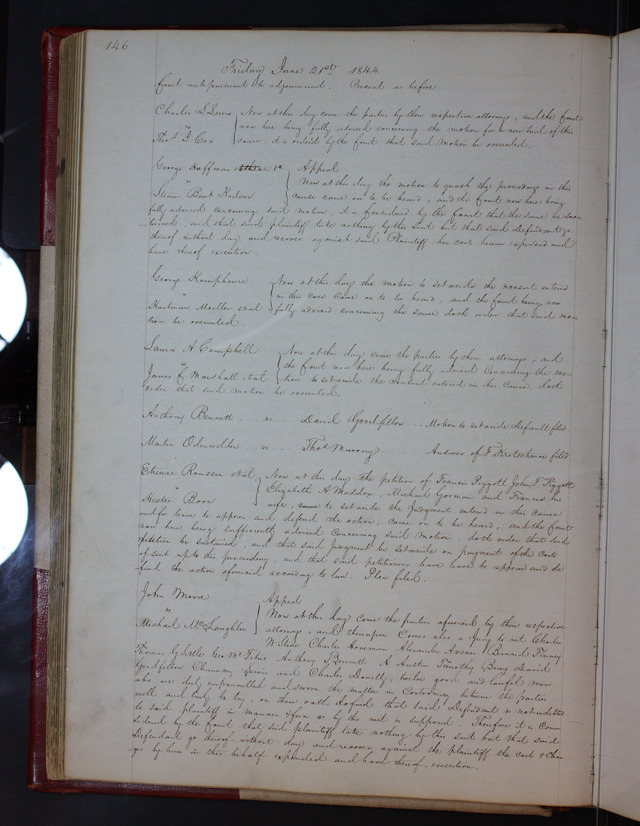 146
Friday June 21st 1844
Court met pursuant to adjournment. Present as before
Charles L Lewis
vs
Thos J Cox
Now at this day come the parties by their respective attorneys, and the Court
now here being fully advised concerning the motion for a new trial of this
cause, it is ordered by the Court that said Motion be overruled.
George Hoffman
vs
Steam Boat Nadires
Appeal
Now at this day the motion to quash the proceedings in this
cause came on to be heard, and the Court now here being
fully advised concerning said motion, it is considered by the Court that the same be sus
tained, and that said plaintiff take nothing by the suit but that said Defendant go
thereof without day and recover against said Plaintiff her costs herein expended and
have thereof execution.
George Kamphouse
vs
Hartman Moeller et al
Now at this day the motion to set aside the nonsuit entered
in this case came on to be heard, and the Court being now
fully advised concerning the same doth order that said mo
tion be overruled
Laura A Campbell
vs
James C Marshall et al
Now at this day come the parties by their attorneys, and
the Court now here being fully advised concerning the mo
tion to set aside the nonsuit entered in this cause, doth
order that said motion be overruled.
Anthony Bennett .. vs .. David Goodfellow .. Motion to set aside Default filed
Martin Odenwilder .. vs .. Thos Murray .. Answer of F Kretschmar filed
Etienne et al
vs
Hester Boon
Now at this day the petition of Francis Piggott John J. Piggott
Elizabeth A Maddox, Michael Gorman and Frances his
wife, same to set aside the Judgment entered in this cause
and for leave to appear and defend the action, came on to be heard, and the Court
now here being sufficiently advised concerning said motion, doth order that said
petition be sustained, and that said Judgment be set aside on payment of the costs
of suit up to this proceeding, and that said petitioners have leave to appear and de
fend the action aforesaid according to law. Plea filed.
John Moore
vs
Michael McLaughlin
Appeal
Now at this day come the parties aforesaid by their respective
attorneys, and thereupon comes also a Jury to wit Charles
W Stew Charles Horneman Alexander Bernard Finney
Thomas Gilbler Geo. Mc Anthony Bennett A Austin Timothy Bray David
Goodfellow Chauncey and Charles Donelly, twelve good and lawful men
who are duly empannelled and sworn the matter in Controversy between the parties
well and truly to try, on their oath do find that said Defendant is not indebted
to said plaintiff in manner & form as by the suit is supposed. Therefore it is Con
sidered by the Court that said plaintiff take nothing by this suit but that said
Defendant go thereof without day and recover against the plaintiff the costs & Char
ges by him in this behalf expended and have thereof execution.